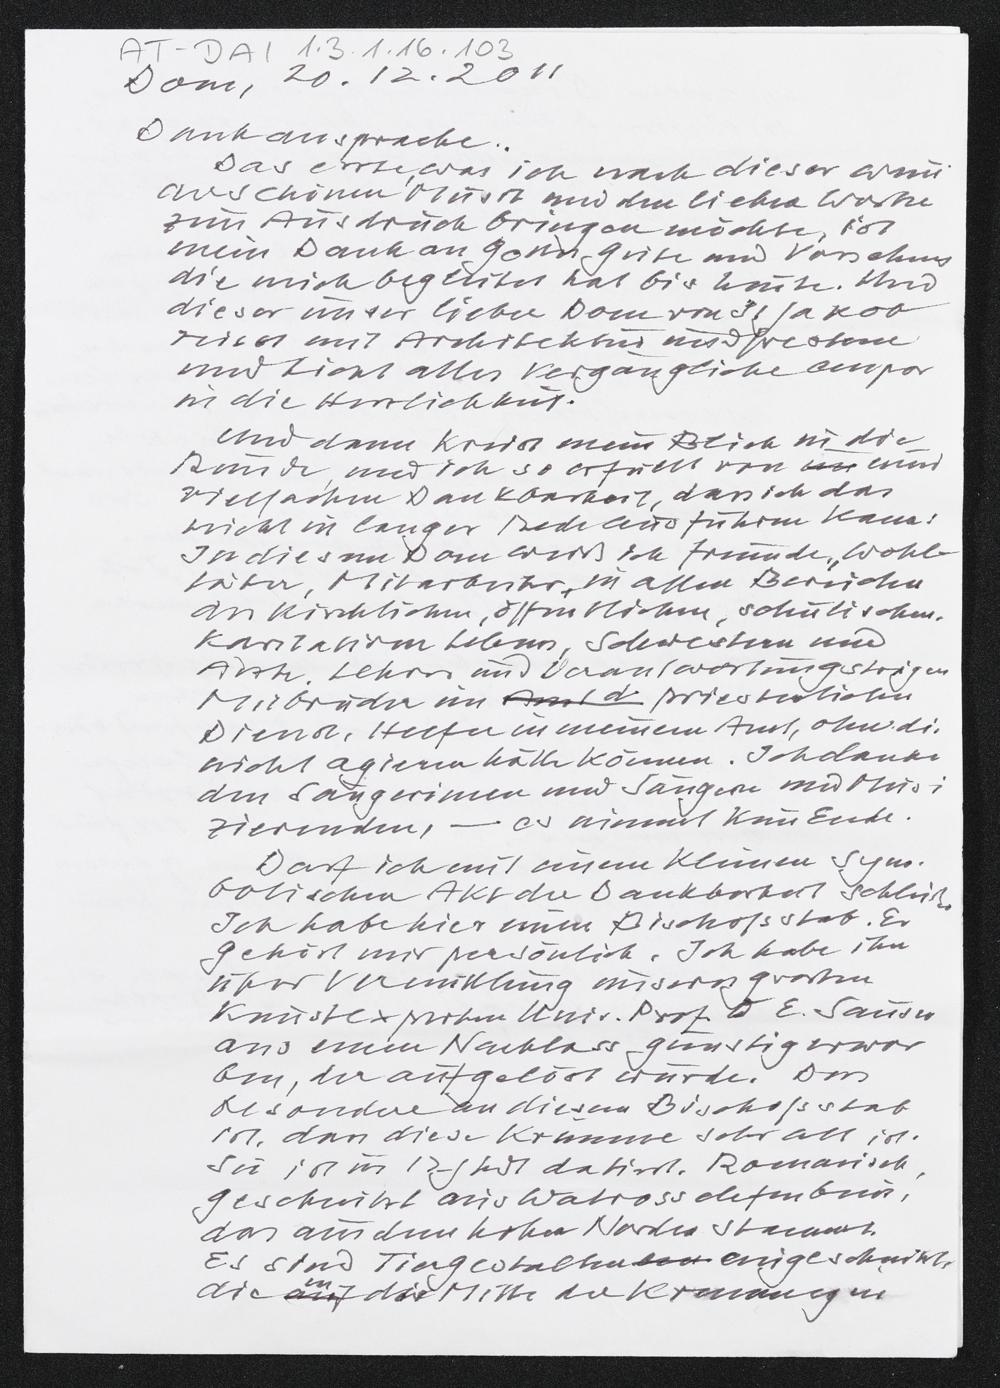 AT-DAI 1.3.1.16.103
Dom, 20.12.2011
Dankansprache..
Das erste, was ich nach dieser wun
derschönen Musik und den lieben Worten
zum Ausdruck bringen möchte, ist
mein Dank an Gottes Güte und Vorsehung
die mich begleitet hat bis heute. Und
dieser unser lieber Dom von St Jakob
reisst mit Architektur und Fresken
und Licht alles Vergängliche empor
in die Herrlichkeit.
Und dann kreist mein Blick in die
Runde, und ich so erfüllt von einer
vielfachen Dankbarkeit, dass ich das
nicht in langer Rede ausführen kann:
In diesem Dom weiß ich Freunde, Wohl
täter, Mitarbeiter, in allen Bereichen
des kirchlichen, öffentlichen, schulischen.
karitativen Lebens, Schwestern und
Ärzte, Lehrer und Verantwortungsträger
Mitbrüder im Amt d priesterlichen
Dienst, Helfer in meinem Amt, ohne die
nicht agieren hätte können. Ich danke
den Sängerinnen und Sängern und Musi
zierenden, — es nimmt kein Ende.
Darf ich mit einem kleinen sym-
bolischen Akt der Dankbarkeit schließen
Ich habe hier einen Bischofsstab. Er
gehört mir persönlich. Ich habe ihn
über Vermittlung unseres großen
Kunstexperten Univ. Prof. D E. Sauser
aus einem Nachlass günstig erwor
ben, der aufgelöst wurde. Das
besondere an diesem Bischofsstab
ist, dass diese Krümme sehr alt ist.
Sie ist ins 12. Jhdt datiert. Romanisch,
geschnitzt aus Walrosselfenbein,
das aus dem hohen Norden stammt.
Es sind Tiergestalten eingeschnitzt,
die auf in die Mitte der Krümmung